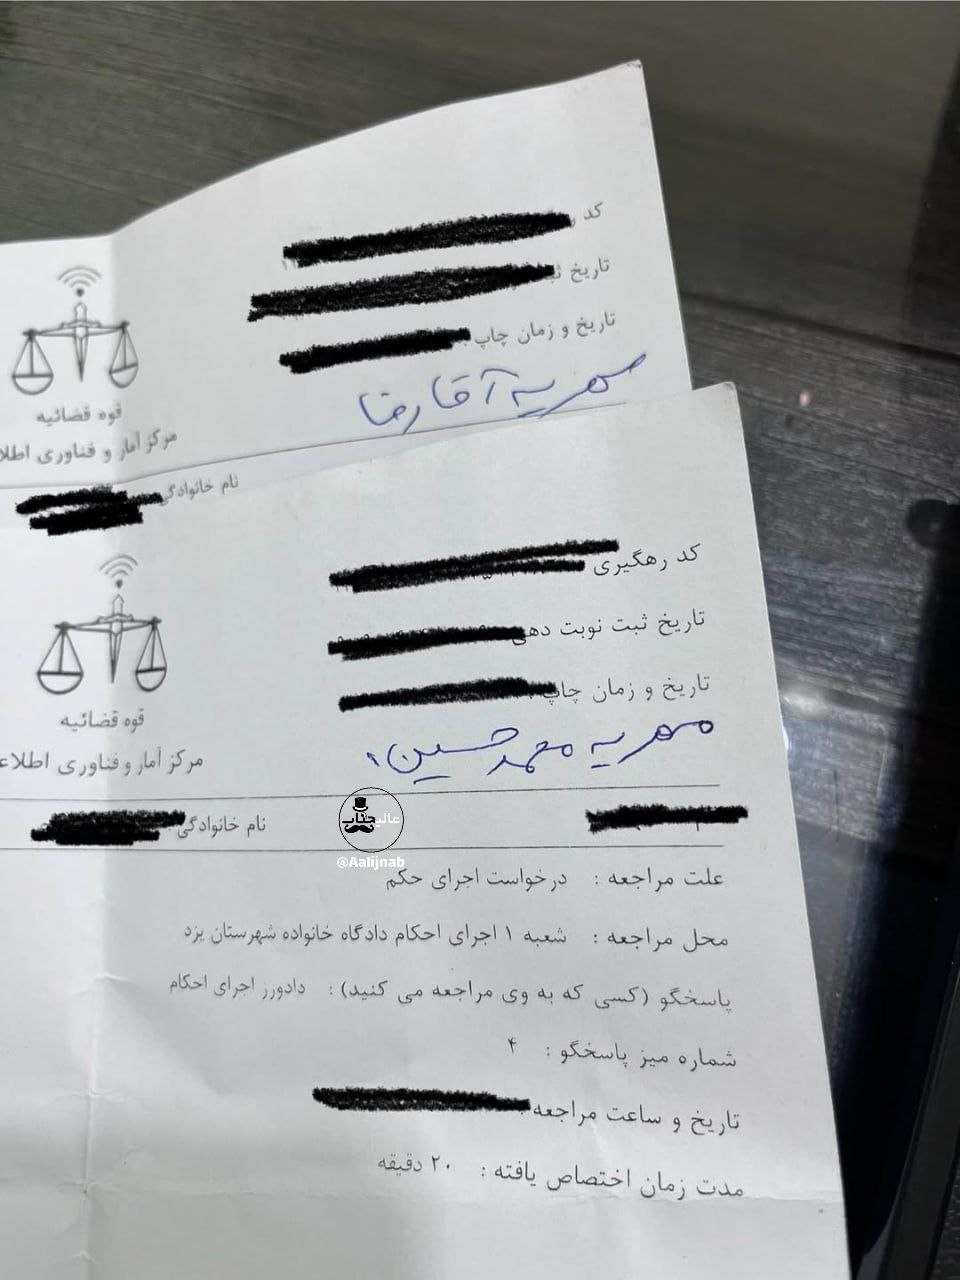 کد ر
تاریخ ث
تاریخ و زمان چاپ
قوه قضائیه
مرکز آمار و فناوری اطلا
مهریه آقا رضا
نام خانوادگی
کد رهگیری
تاریخ ثبت نوبت دهی
تاریخ و زمان چاپ
قوه قضائیه
مرکز آمار و فناوری اطلاع
مهریه محمد حسین
نام خانوادگی:
عالیجناب
@Aalijnab
علت مراجعه : درخواست اجرای حکم
محل مراجعه : شعبه ۱ اجرای احکام دادگاه خانواده شهرستان یزد
پاسخگو (کسی که به وی مراجعه می کنید) : دادورز اجرای احکام
شماره میز پاسخگو : ۴
تاریخ و ساعت مراجعه
مدت زمان اختصاص یافته : ۲۰ دقیقه